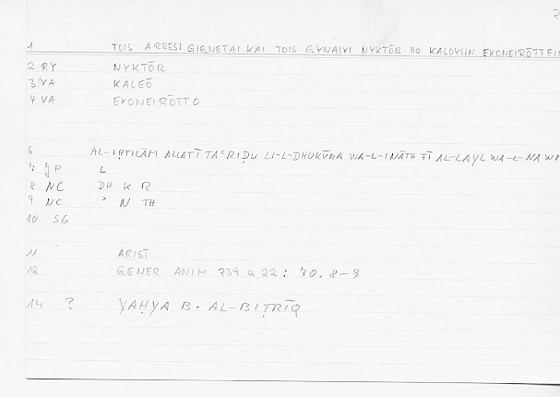 2
1 TOIS ARRESI GIGNETAI KAI TOIS GYNAIXI NYKTŌR HO KALOYSIN EXONEIRŌTTEIN
2 RY NYKTŌR
3 VA KALEŌ
4 VA EXONEIRŌTTO
6 AL-IḤTILĀM ALLATĪ TAʿRIḌU LI-L-DHUKŪRA WA-L-INĀTH FĪ AL-LAYL WA-L-NAWM
7 JP L
8 NC DH K R
9 NC ʾ N TH
10 SG
11 ARIST
12 GENER ANIM 739 a 22 : 70. 8-9
14 ? YAḤYA B. AL-BIṬRĪQ